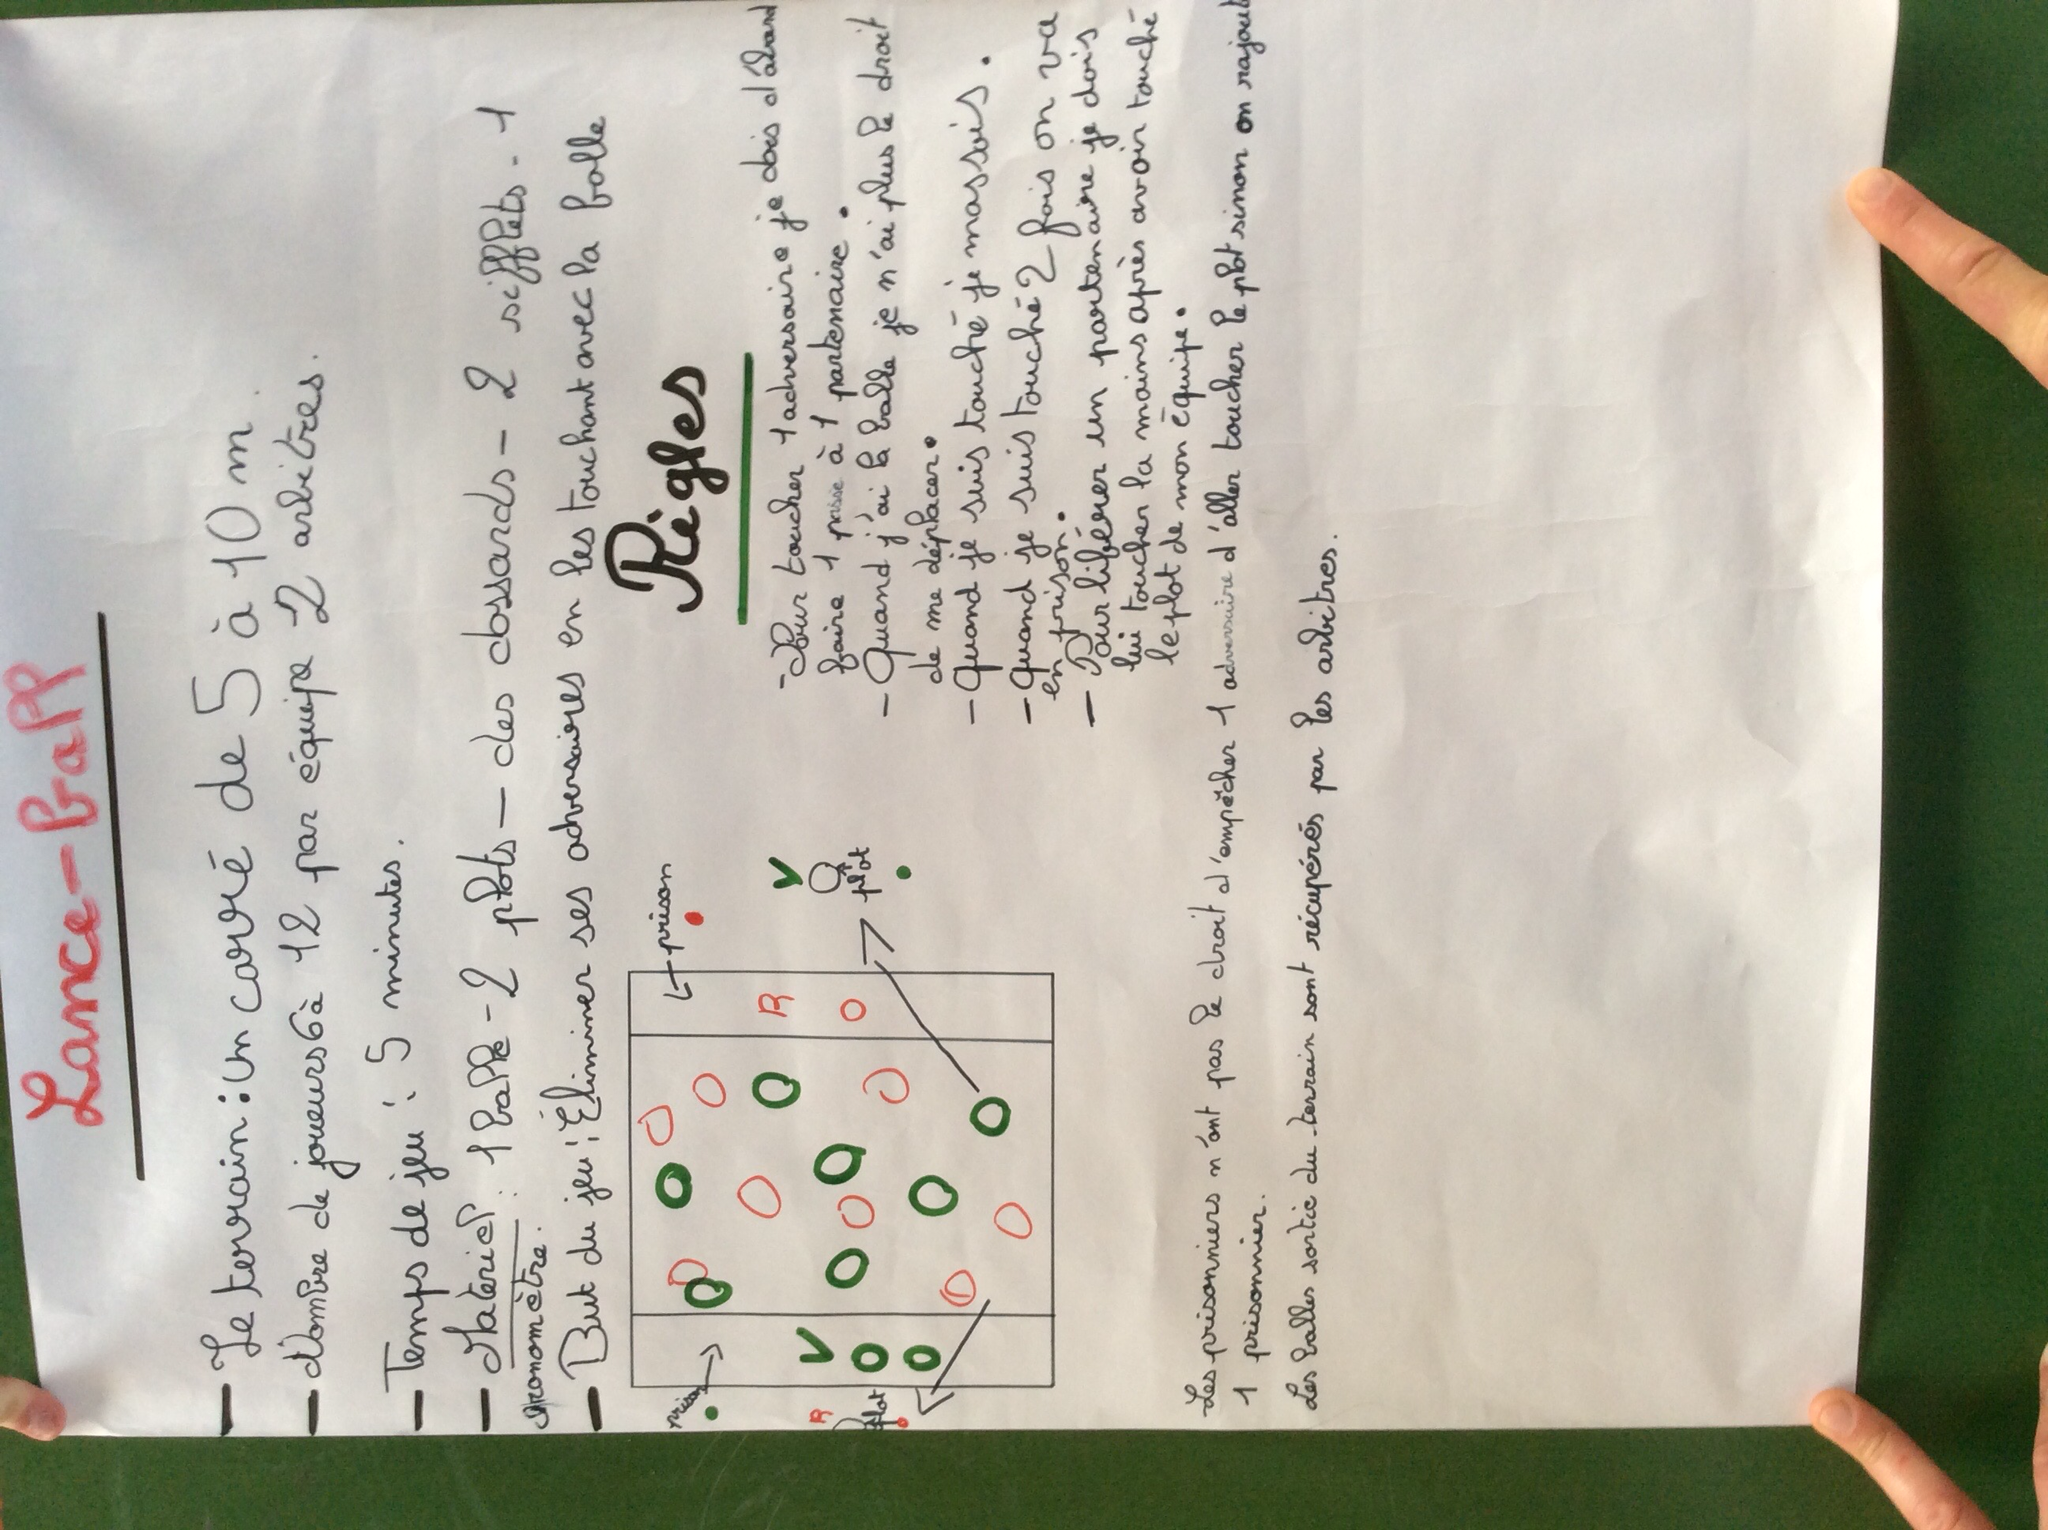 Lance-ball
- Le terrain : un carré de 5 à 10 m.
- Nombre de joueurs 6 à 12 par équipe 2 arbitres.
- Temps de jeu : 5 minutes.
- Matériel : 1 balle - 2 plots - des dossards - 2 sifflets - 1
chronomètre.
- But du jeu : Éliminer ses adversaires en les touchant avec la balle
Règles
- Pour toucher 1 adversaire je dois d'abord
faire 1 passe à 1 partenaire.
- Quand j'ai la balle je n'ai plus le droit
de me déplacer.
- Quand je suis touché je m'assois.
- Quand je suis touché 2 fois on va
en prison.
- Pour libérer un partenaire je dois
lui toucher la mains après avoir touché
le plot de mon équipe.
prison
R
V
plot
prison
V
R
plot
Les prisonniers n'ont pas le droit d'empêcher 1 adversaire d'aller toucher le plot sinon on rajoute
1 prisonnier.
Les balles sortie du terrain sont récupérés par les arbitres.